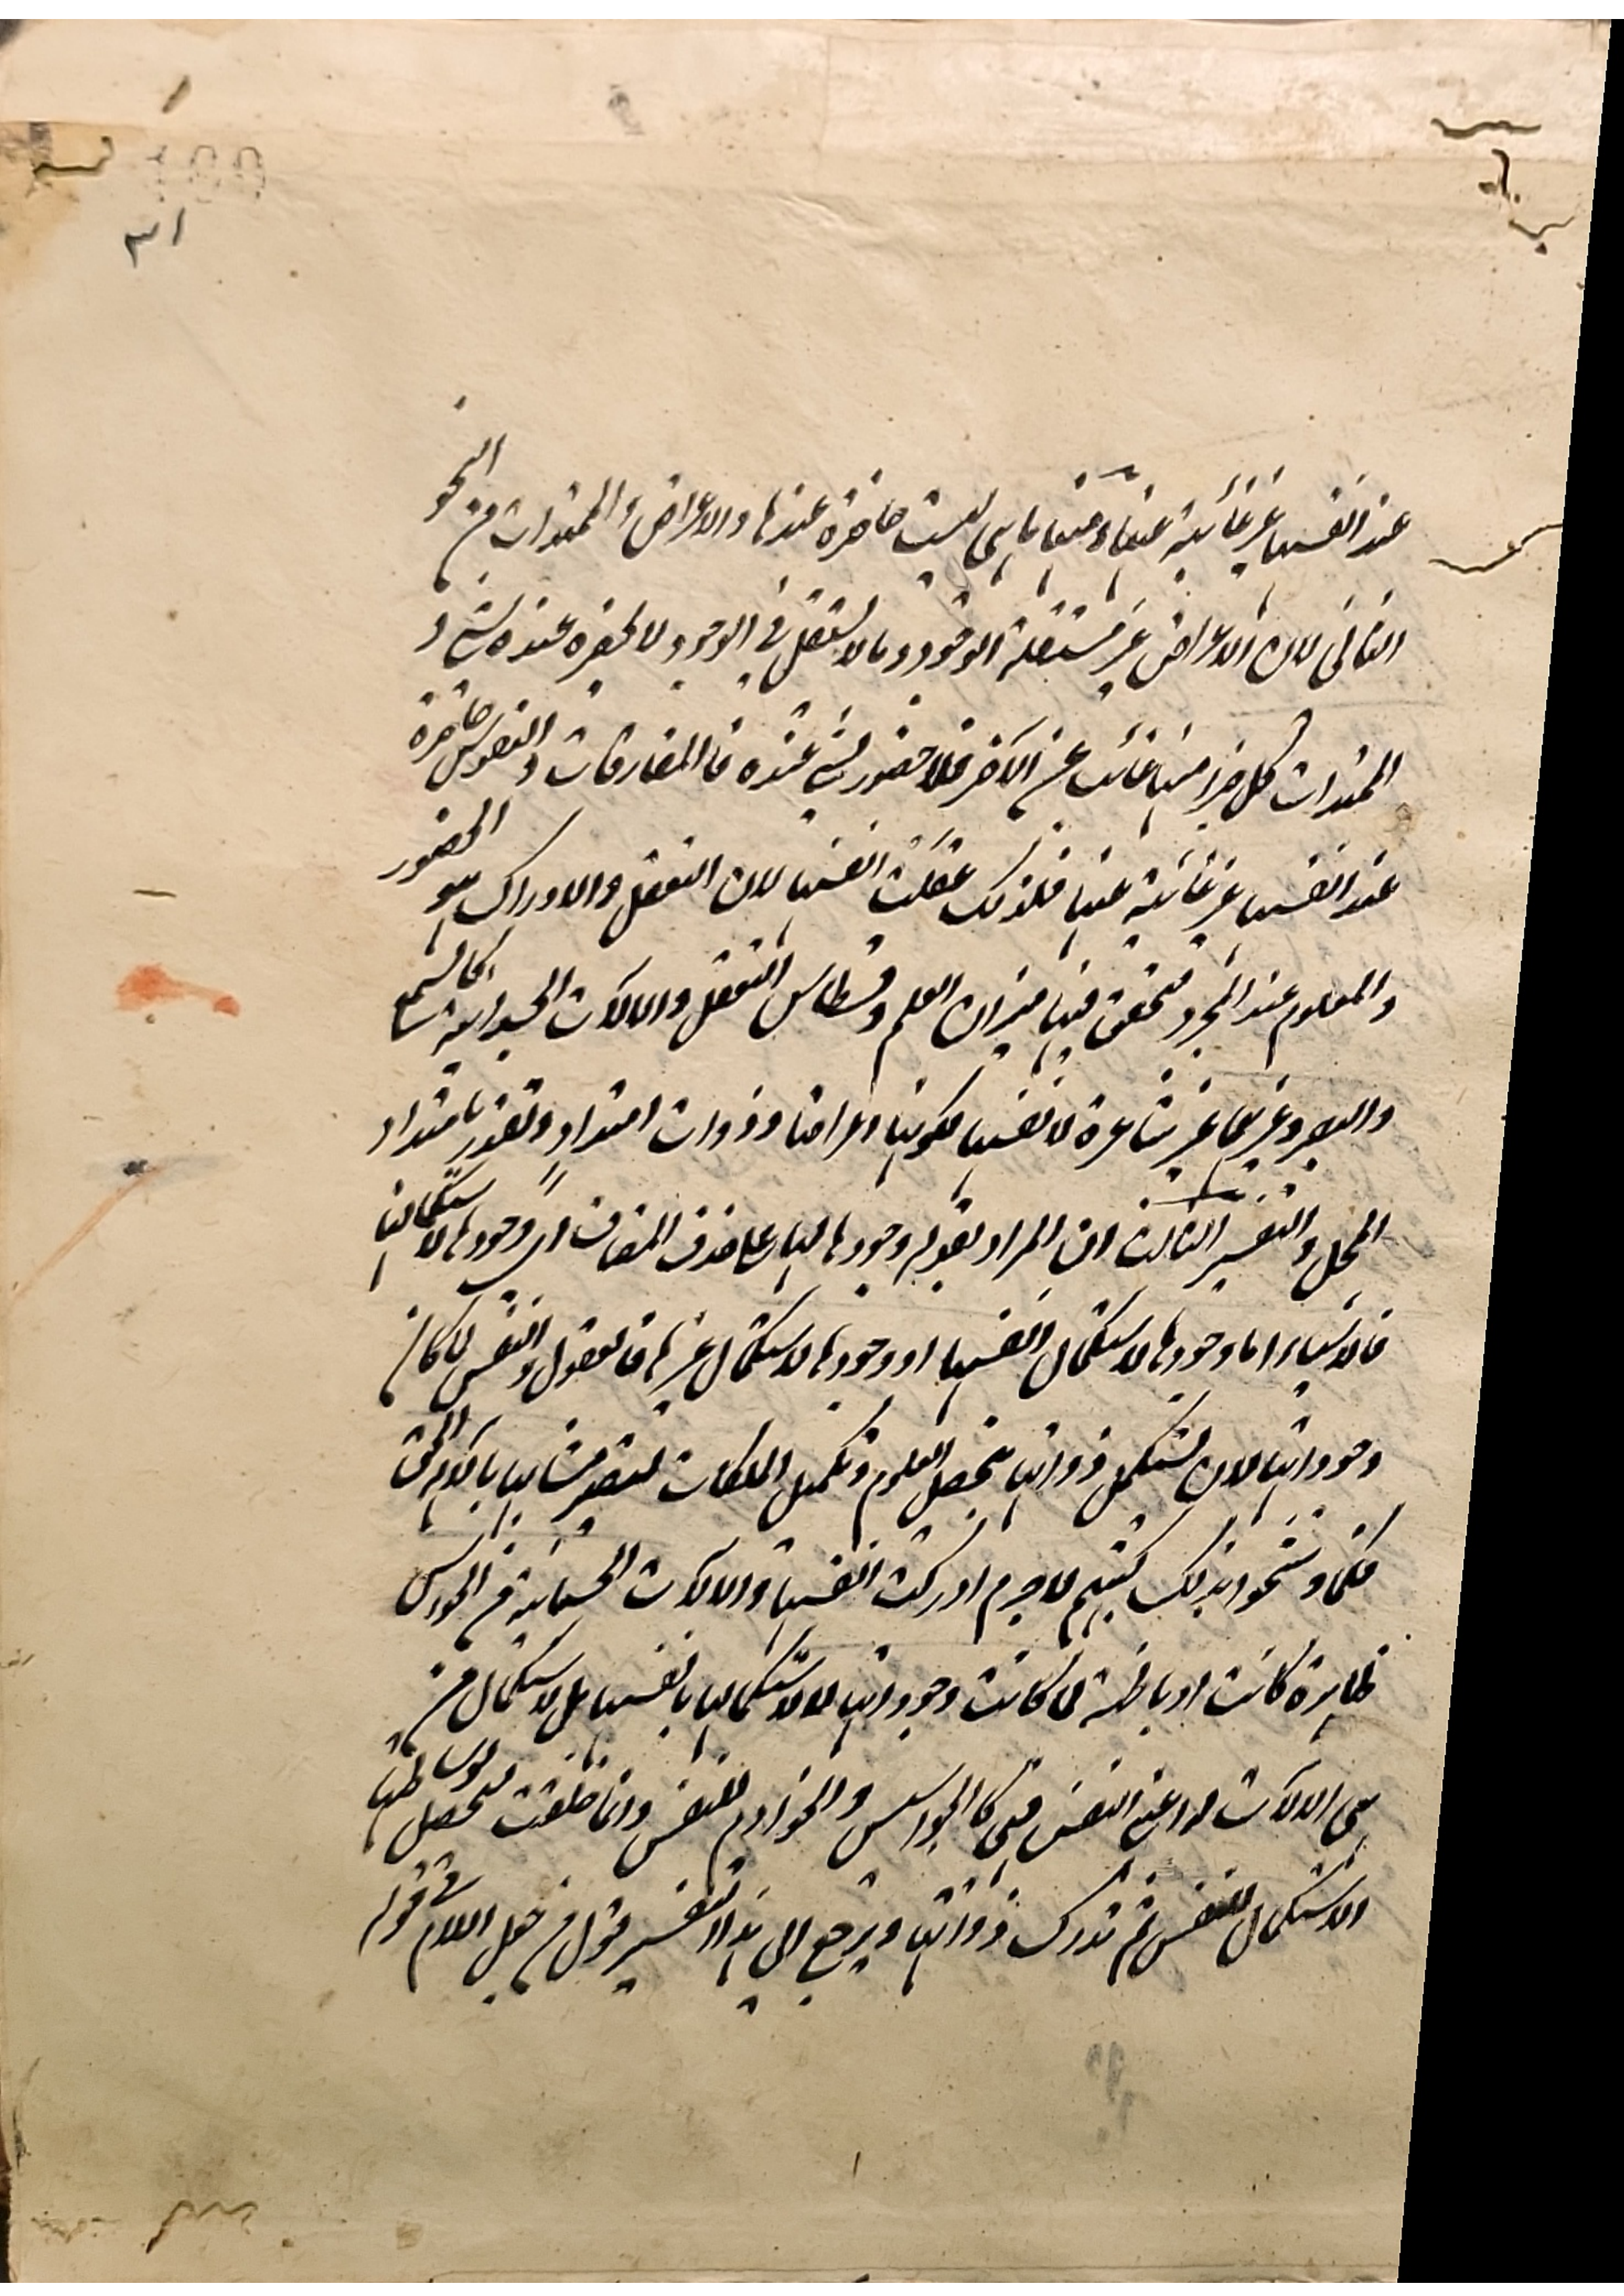 ٣١
عند انفسها غير غائبة عنها ومنها ما هي ليست حاضرة عندها والاعراض والممتدات من النحو
الثاني لان الاعراض غير مستقلة الوجود وما لا يستقل في الوجود لا يحضره عنده شيء و
الممتدات كل جزء منها غائب عن الآخر فلا حضور لشيء عنده فالمفارقات والنفوس حاضرة
عند انفسها غير غائبة عنها فلذلك عقلت انفسها لان التعقل والادراك هو الحضور
والمعلوم عند المجرد فتحقق فيها ميزان العلم وقسطاس التعقل والالات الجسدانية كالسمع
والبصر وغيرهما غير شاعرة لانفسها لكونها اعراضا وذوات امتداد وتقدر بامتداد
المحل والتفسير الثالث ان المراد بقوله وجودها لها على حذف المضاف اي وجودها لاستكمالها
فالاشياء اما وجودها لاستكمال انفسها او وجودها لاستكمال غيرها فالعقول والنفس لما كان
وجوداتها لان تستكمل ذواتها بتحصيل العلوم وتكميل الملكات لتصير متشابها بالاله الحق
لاجرم ادركت انفسها والالات الجسمانية من الحواس
ظاهرة كانت او باطنة لما كانت وجوداتها لا لاستكمالها بانفسها بل لاستكمال من
هي الالات له اعني النفس فهي كالجواسيس والخوادم للنفس وانما خلقت ليحصل بوساطتها
الاستكمال للنفس لم تدرك ذواتها ويرجع الى هذا التفسير قول من جعل اللام في قوله